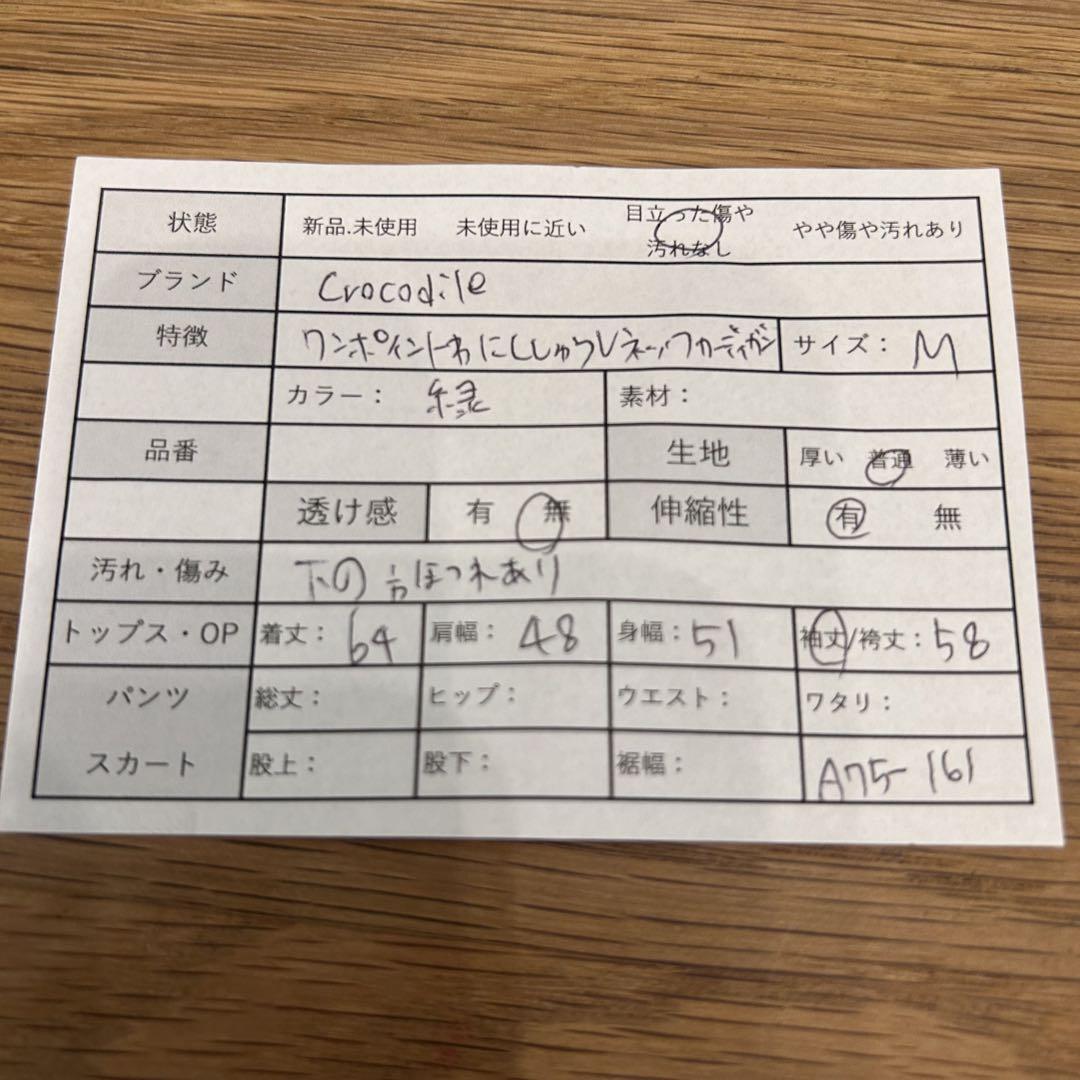 状態 新品.未使用 未使用に近い 目立った傷や 汚れなし やや傷や汚れあり
ブランド Crocodile
特徴 ワンポイントわにししゅうVネックカーディガン サイズ: M
カラー: 緑 素材:
品番 生地 厚い 普通 薄い
透け感 有 無 伸縮性 有 無
汚れ・傷み 下の方ほつれあり
トップス・OP 着丈: 64 肩幅: 48 身幅: 51 袖丈/袴丈: 58
パンツ 総丈: ヒップ: ウエスト: ワタリ:
スカート 股上: 股下: 裾幅: A75-161